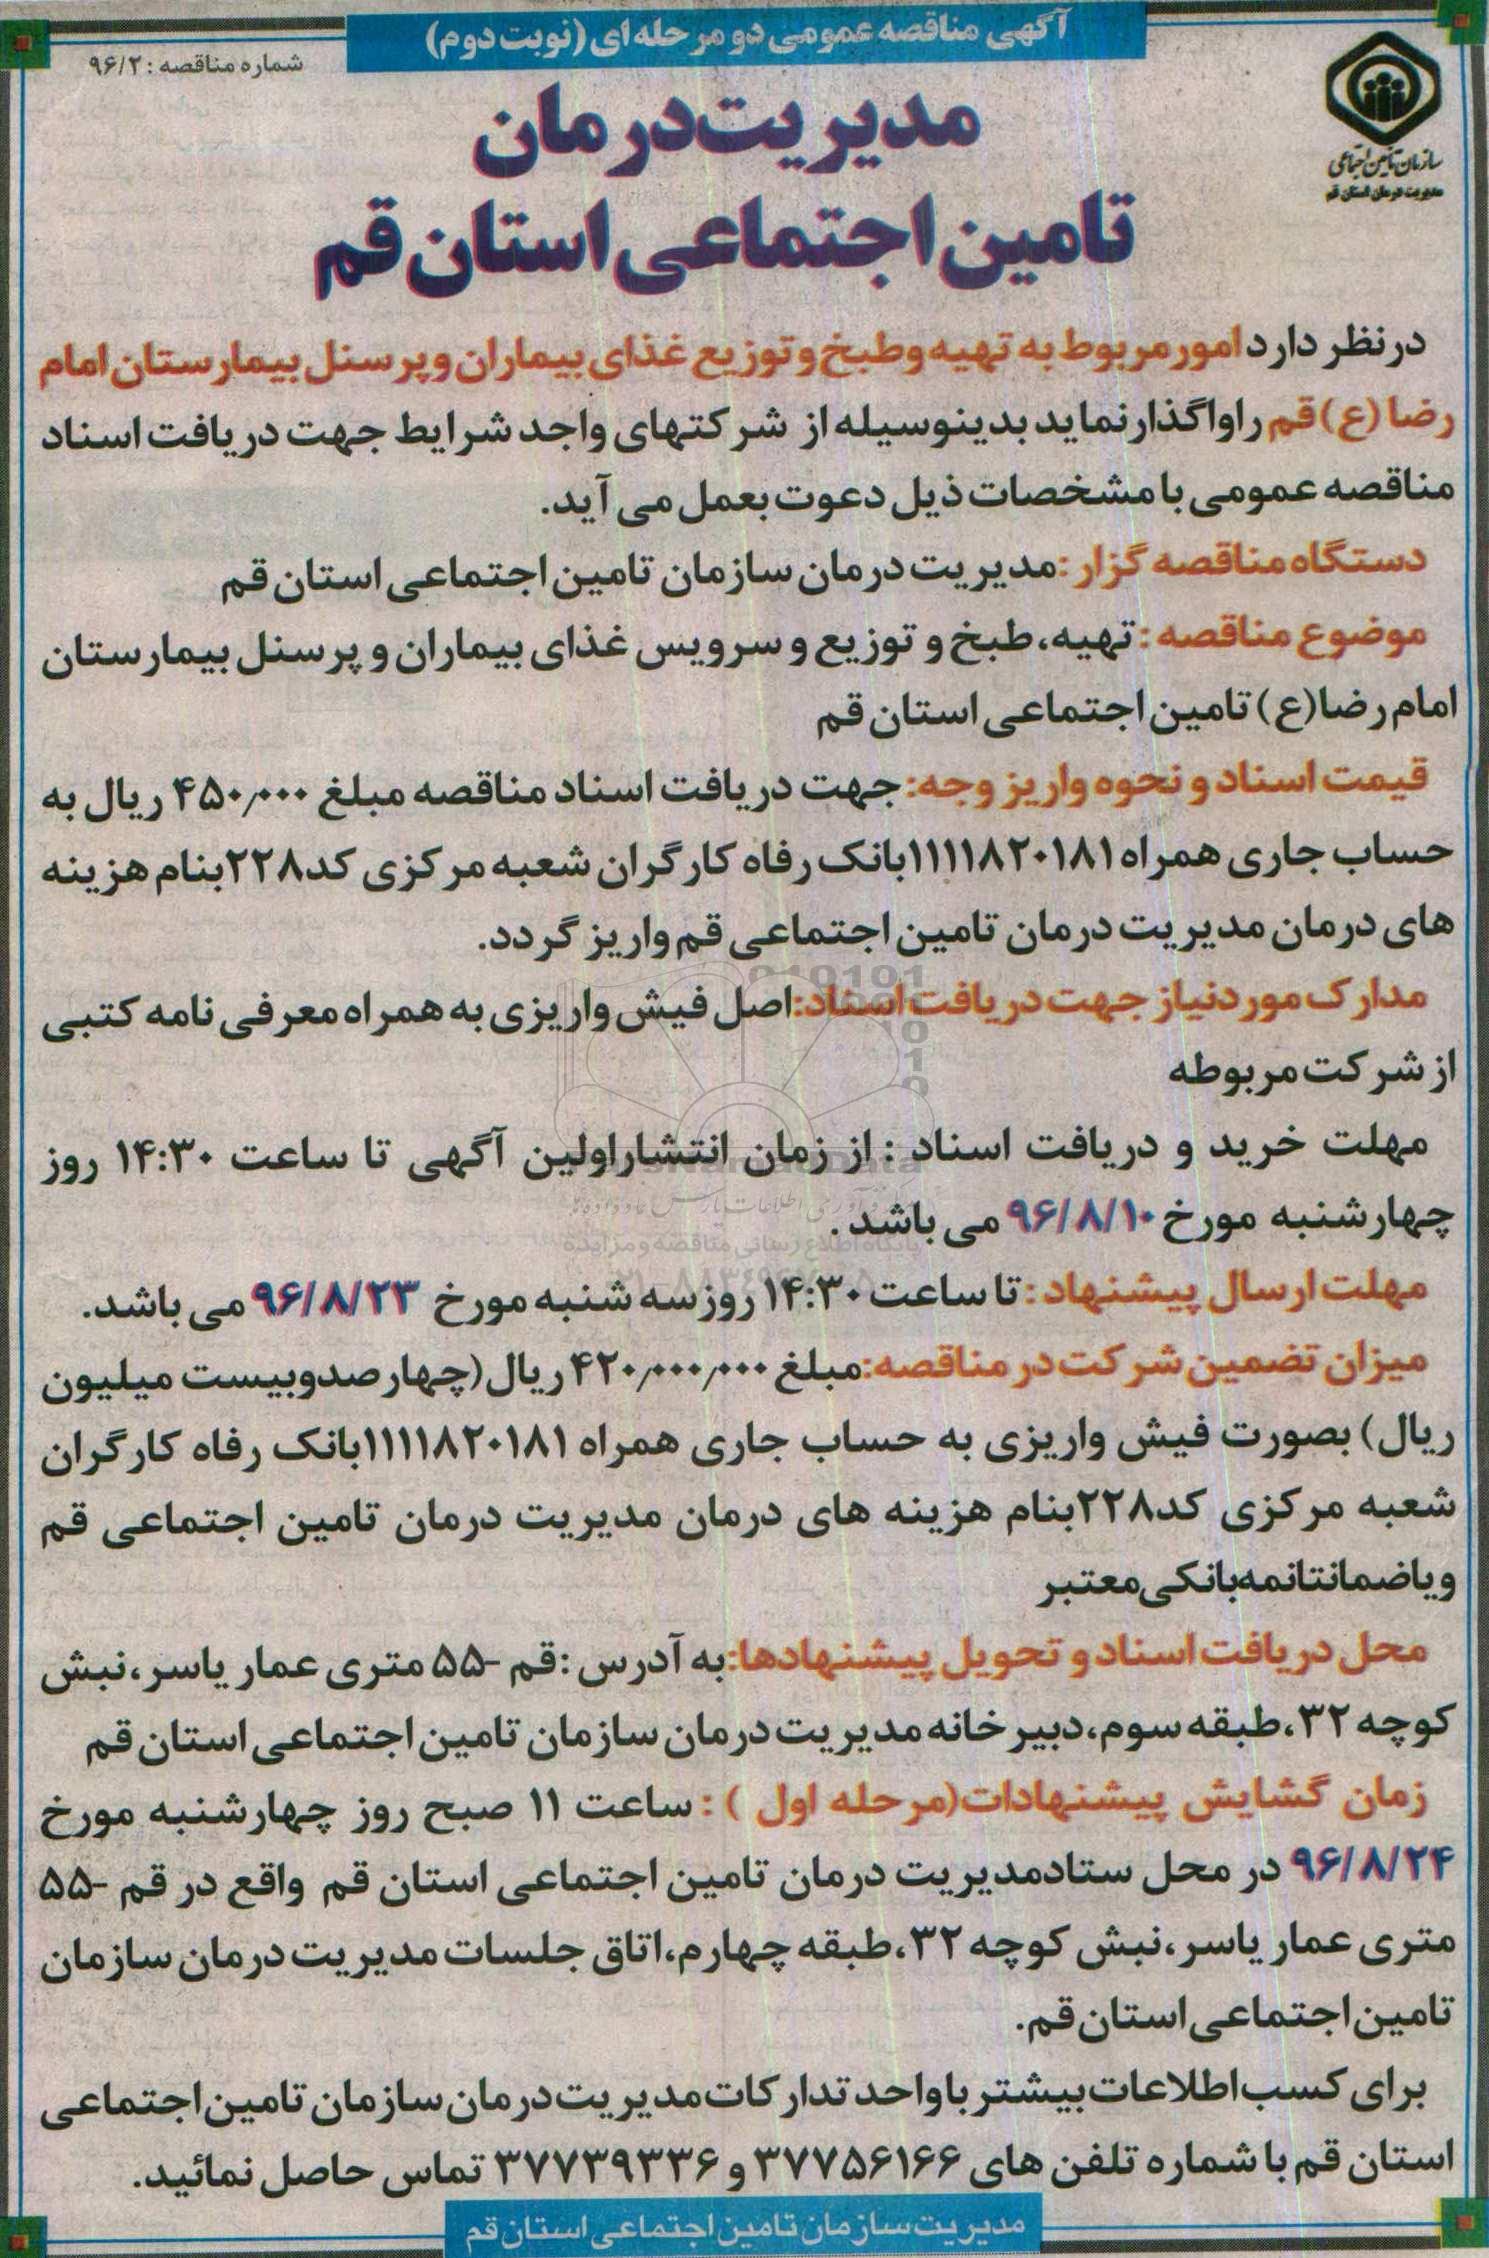 آگهی مناقصه عمومی دو مرحله ای (نوبت دوم)
شماره مناقصه : ۹۶/۲
سازمان تأمین اجتماعی
مدیریت درمان استان قم
مدیریت درمان
تامین اجتماعی استان قم
درنظر دارد امور مربوط به تهیه وطبخ و توزیع غذای بیماران و پرسنل بیمارستان امام
رضا (ع) قم راواگذارنماید بدینوسیله از شرکتهای واجد شرایط جهت دریافت اسناد
مناقصه عمومی با مشخصات ذیل دعوت بعمل می آید.
دستگاه مناقصه گزار :مدیریت درمان سازمان تامین اجتماعی استان قم
موضوع مناقصه : تهیه، طبخ و توزیع و سرویس غذای بیماران و پرسنل بیمارستان
امام رضا(ع) تامین اجتماعی استان قم
قیمت اسناد و نحوه واریز وجه: جهت دریافت اسناد مناقصه مبلغ ۴۵۰/۰۰۰ ریال به
حساب جاری همراه ۱۱۱۱۸۲۰۱۸۱بانک رفاه کارگران شعبه مرکزی کد۲۲۸بنام هزینه
های درمان مدیریت درمان تامین اجتماعی قم واریز گردد.
مدارک موردنیاز جهت دریافت اسناد:اصل فیش واریزی به همراه معرفی نامه کتبی
از شرکت مربوطه
مهلت خرید و دریافت اسناد : از زمان انتشاراولین آگهی تا ساعت ۱۴:۳۰ روز
چهارشنبه مورخ ۹۶/۸/۱۰ می باشد .
پایگاه اطلاع رسانی مناقصه و مزایده
مهلت ارسال پیشنهاد : تا ساعت ۱۴:۳۰ روز سه شنبه مورخ ۹۶/۸/۲۳ می باشد.
میزان تضمین شرکت در مناقصه:مبلغ ۴۲۰/۰۰۰/۰۰۰ ریال (چهارصدوبیست میلیون
ریال) بصورت فیش واریزی به حساب جاری همراه ۱۱۱۱۸۲۰۱۸۱بانک رفاه کارگران
شعبه مرکزی کد۲۲۸بنام هزینه های درمان مدیریت درمان تامین اجتماعی قم
ویاضمانتانمه‌بانکی‌معتبر
محل دریافت اسناد و تحویل پیشنهادها:به آدرس :قم -۵۵ متری عمار یاسر ،نبش
کوچه ۳۲ ،طبقه سوم،دبیرخانه مدیریت درمان سازمان تامین اجتماعی استان قم
زمان گشایش پیشنهادات(مرحله اول ) : ساعت ۱۱ صبح روز چهارشنبه مورخ
۹۶/۸/۲۴ در محل ستادمدیریت درمان تامین اجتماعی استان قم واقع در قم -۵۵
متری عمار یاسر ،نبش کوچه ۳۲ ،طبقه چهارم،اتاق جلسات مدیریت درمان سازمان
تامین اجتماعی استان قم.
برای کسب اطلاعات بیشتر با واحد تدارکات مدیریت درمان سازمان تامین اجتماعی
استان قم با شماره تلفن های ۳۷۷۵۶۱۶۶ و ۳۷۷۳۹۳۳۶ تماس حاصل نمائید.
مدیریت سازمان تامین اجتماعی استان قم